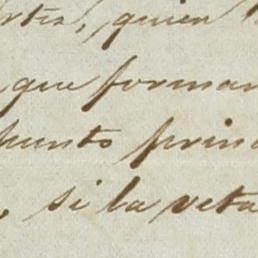 quien
que forman
punto prin
, si la veta